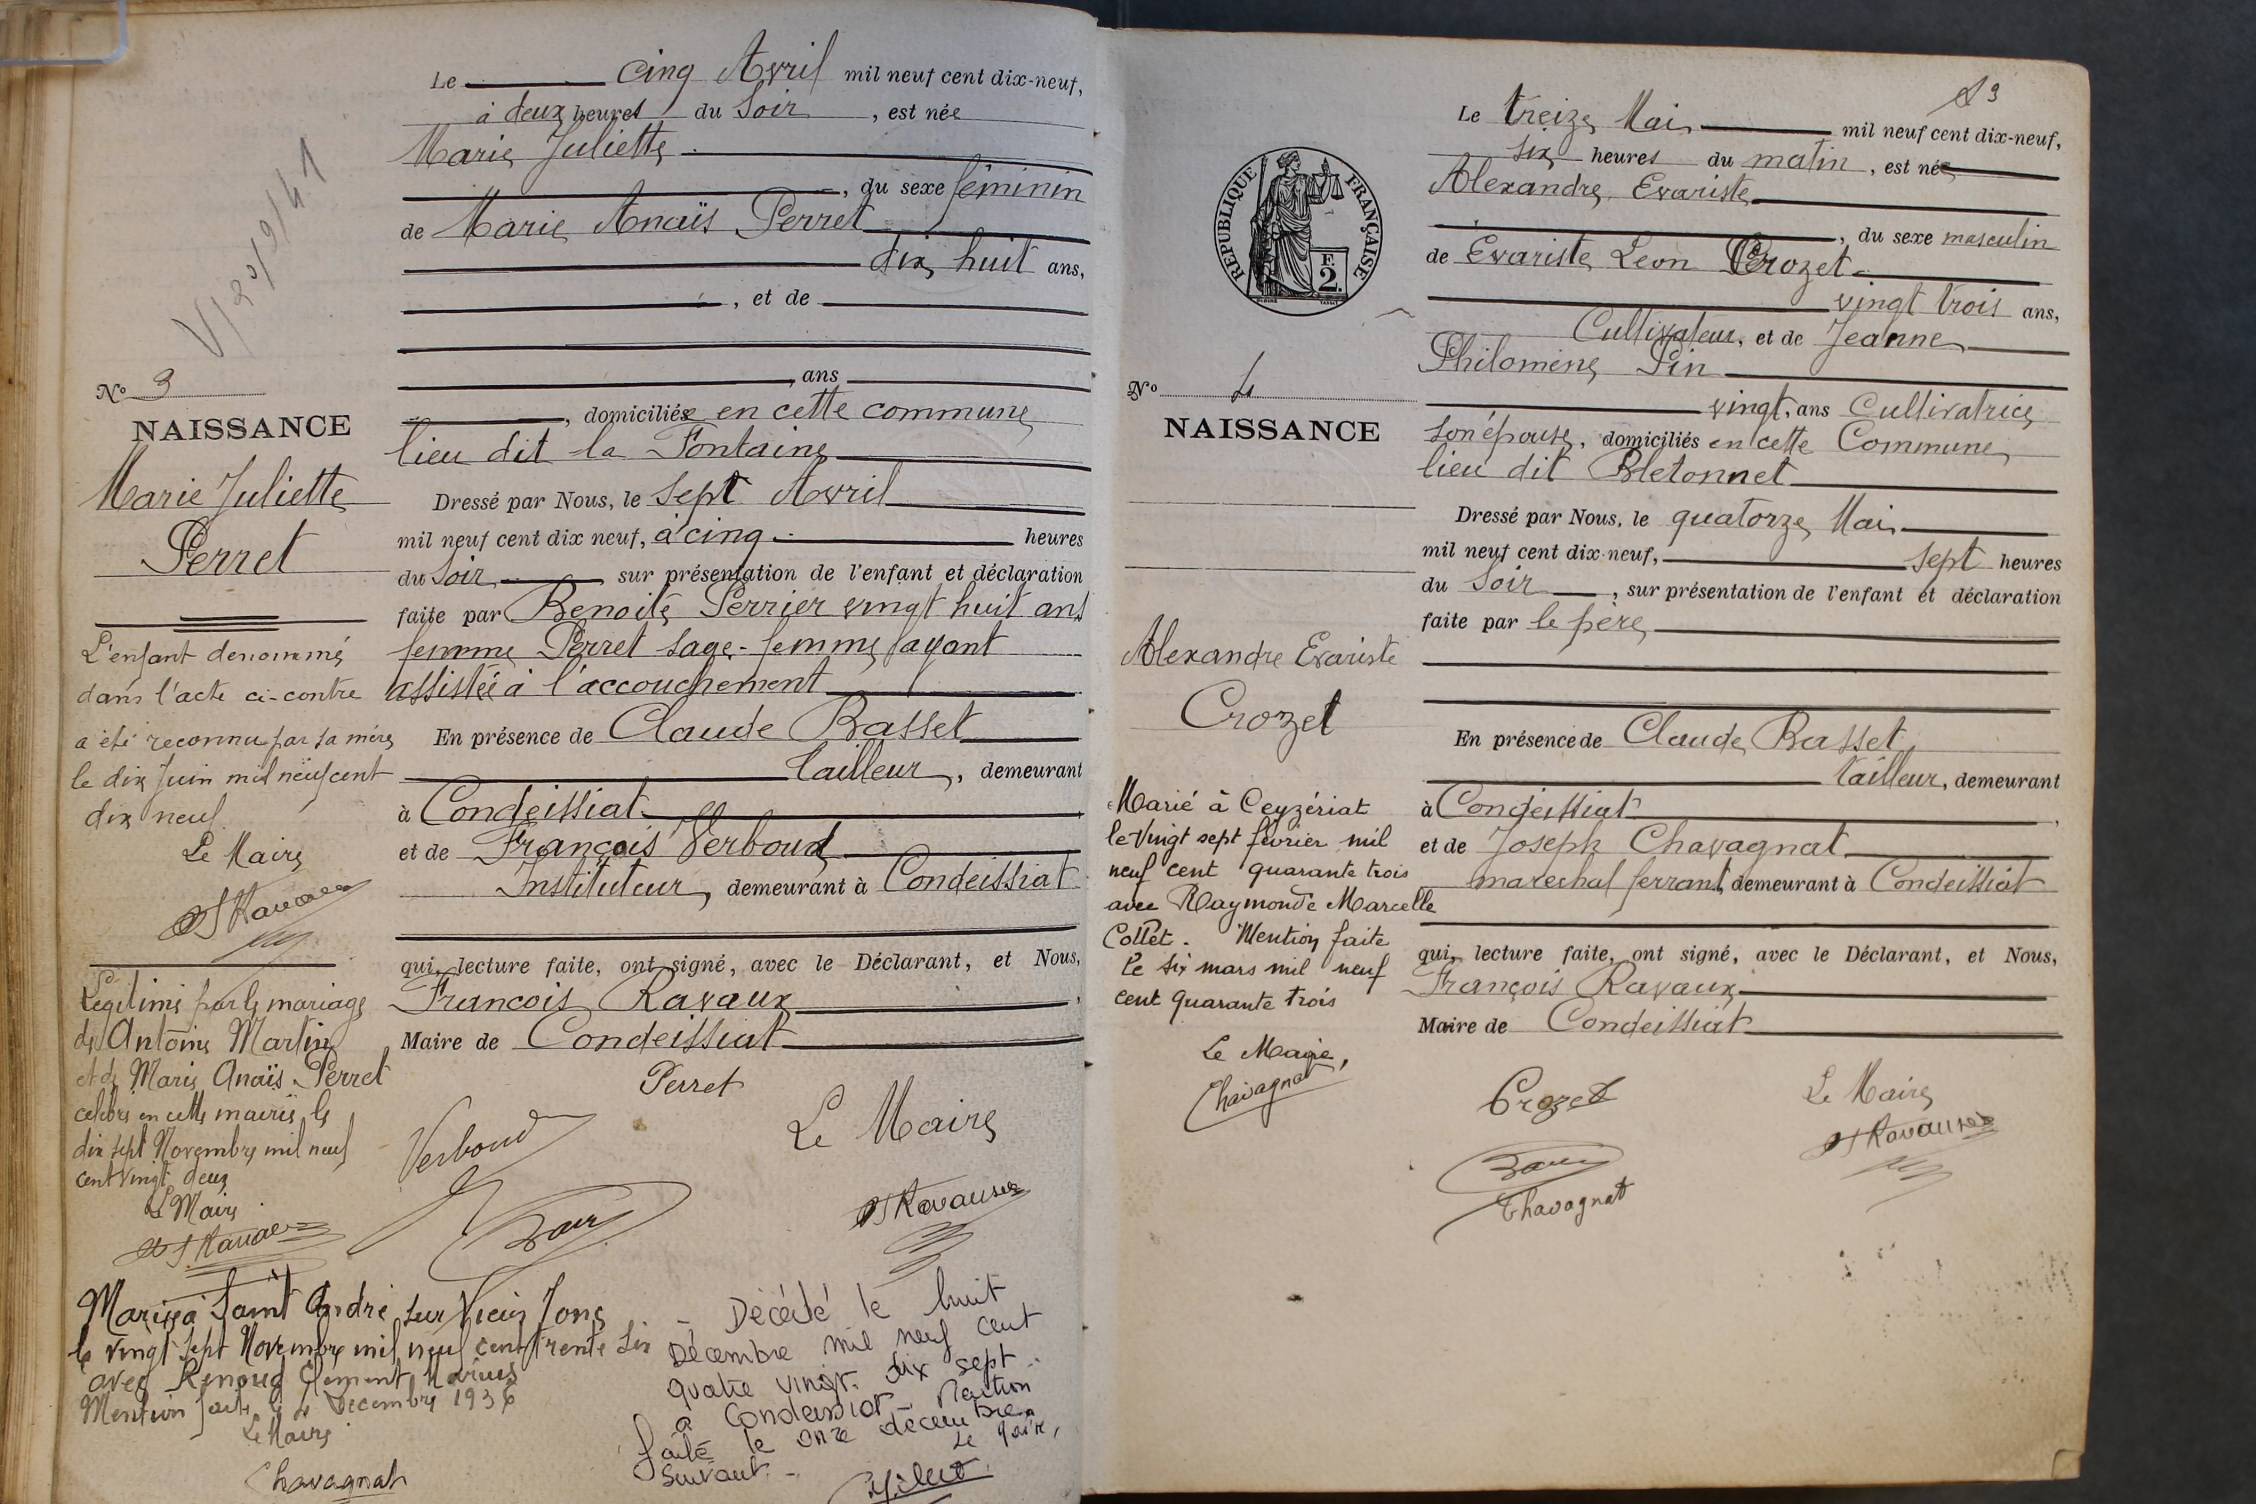 V/20/9/41
Le cinq Avril mil neuf cent dix-neuf,
à deux heures du soir, est née
Marie Juliette
, du sexe féminin
de Marie Anaïs Perret
dix huit ans,
, et de
, ans
, domiciliée en cette commune
lieu dit la Fontaine
Dressé par Nous, le sept Avril
mil neuf cent dix neuf, à cinq heures
du soir, sur présentation de l'enfant et déclaration
faite par Benoite Perrier vingt huit ans
femme Perret sage-femme ayant
assistée à l'accouchement
En présence de Claude Basset
tailleur, demeurant
à Condeissiat
et de François Verboud
Instituteur, demeurant à Condeissiat
qui, lecture faite, ont signé, avec le Déclarant, et Nous,
Francois Ravaux
Maire de Condeissiat
Perret
Verboud
Le Maire
Ravaux
No 3
NAISSANCE
Marie Juliette
Perret
L'enfant denommé
dans l'acte ci-contre
a été reconnu par sa mère
le dix Juin mil neuf cent
dix neuf
Le Maire
Ravaux
Légitimé par le mariage
de Antoine Martin
et de Marie Anaïs Perret
célébré en cette mairie le
dix sept Novembre mil neuf
cent vingt deux
Le Maire
Ravaux
Mariée à Saint André sur Vieux Jonc
le vingt sept Novembre mil neuf cent trente six
avec Renoud Clément Marius
Mention faite le 4 Décembre 1936
Le Maire
Chavagnat
- Décédé le huit
Décembre mil neuf cent
quatre vingt dix sept
à Condeissiat. Mention
faite le onze décembre
suivant. -
Le Maire,
Le treize Mai mil neuf cent dix-neuf,
six heures du matin, est né
Alexandre Evariste
, du sexe masculin
de Evariste Leon Crozet
vingt trois ans,
Cultivateur, et de Jeanne
Philomène Pin
vingt, ans Cultivatrice
son épouse, domiciliés en cette Commune
lieu dit Bletonnet
Dressé par Nous, le quatorze Mai
mil neuf cent dix-neuf, sept heures
du soir, sur présentation de l'enfant et déclaration
faite par le père
En présence de Claude Basset
tailleur, demeurant
à Condeissiat
et de Joseph Chavagnat
marechal ferrant, demeurant à Condeissiat
qui, lecture faite, ont signé, avec le Déclarant, et Nous,
François Ravaux
Maire de Condeissiat
Crozet
Le Maire
Ravaux
Chavagnat
RÉPUBLIQUE FRANÇAISE
F.
2.
No 4
NAISSANCE
Alexandre Evariste
Crozet
Marié à Ceyzériat
le vingt sept février mil
neuf cent quarante trois
avec Raymonde Marcelle
Collet. Mention faite
le six mars mil neuf
cent quarante trois
Le Maire,
Chavagnat